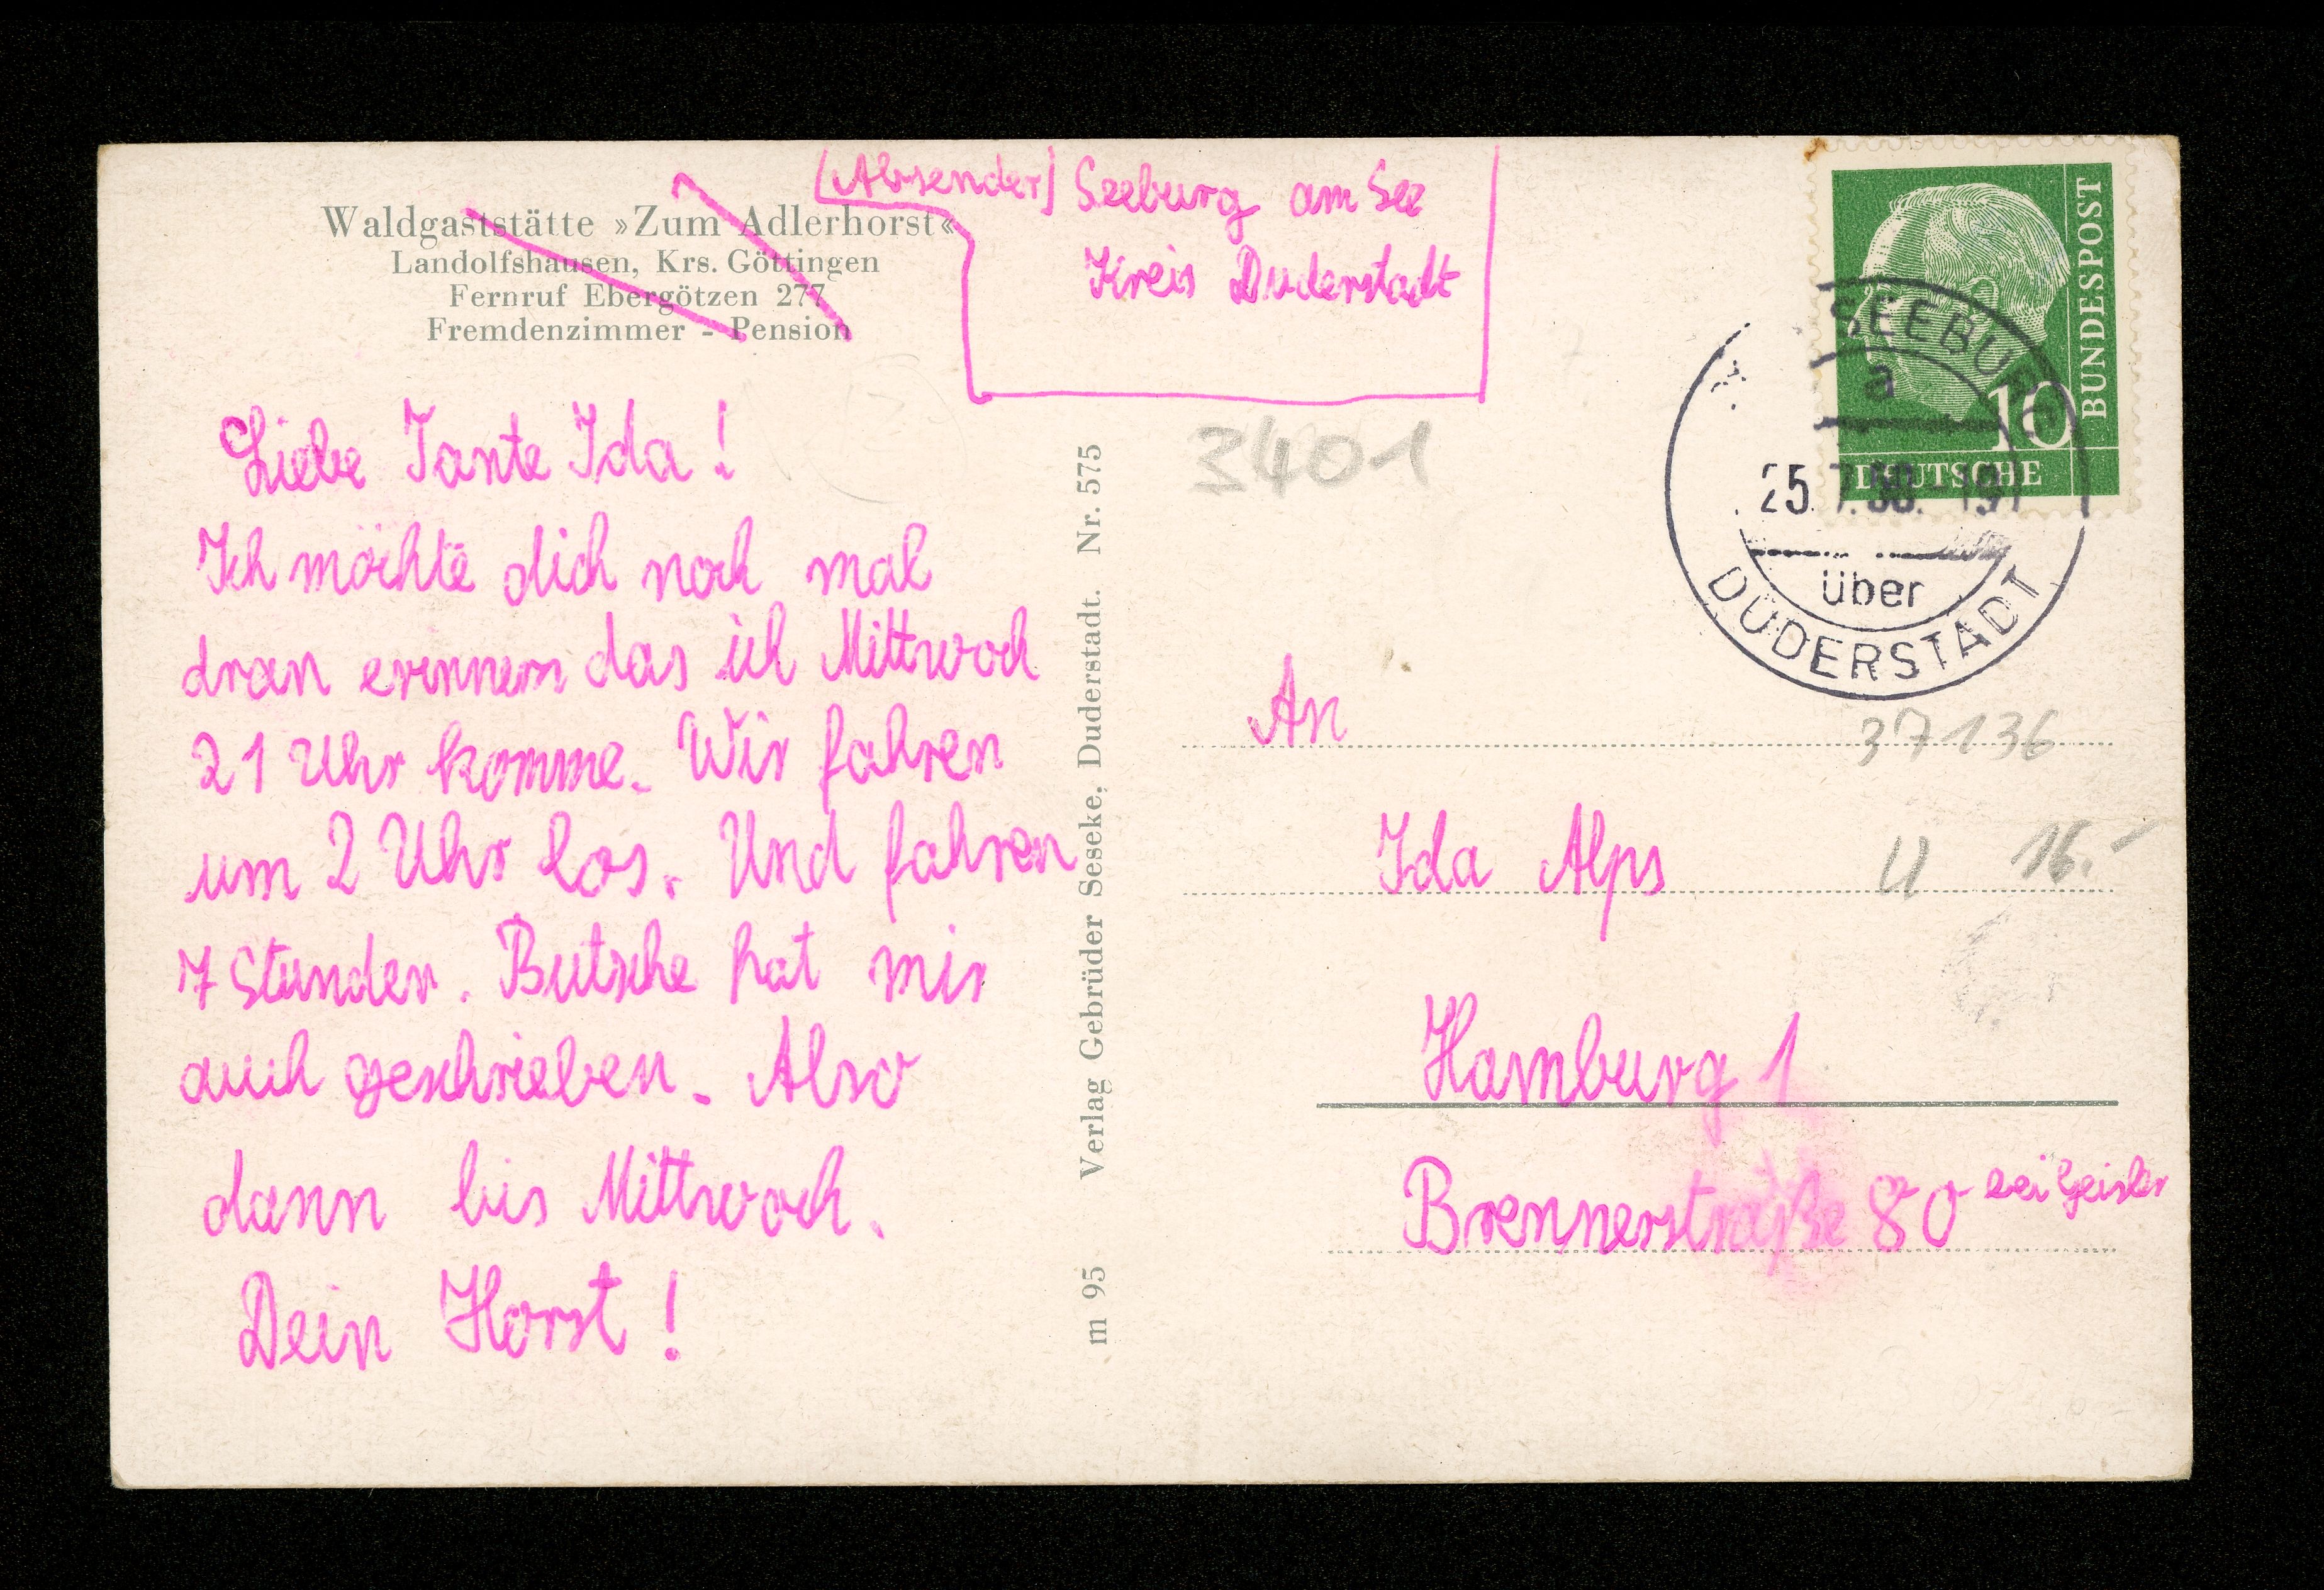 Waldgaststätte »Zum Adlerhorst«
Landolfshausen, Krs. Göttingen
Fernruf Ebergötzen 277
Fremdenzimmer - Pension
(Absender) Seeburg am See
Kreis Duderstadt
Liebe Tante Ida!
Ich möchte dich noch mal
dran erinnern das ich Mittwoch
21 Uhr komme. Wir fahren
um 2 Uhr los. Und fahren
7 Stunden. Butsche hat mir
auch geschrieben. Also
dann bis Mittwoch.
Dein Horst!
m 95 Verlag Gebrüder Seseke, Duderstadt. Nr. 575
3401
BUNDESPOST
10
DEUTSCHE
SEEBURG
a
25.7. -19
über
DUDERSTADT
An
37136
Ida Alps
U 16.-
Hamburg 1
Brennerstraße 80 bei Geisler